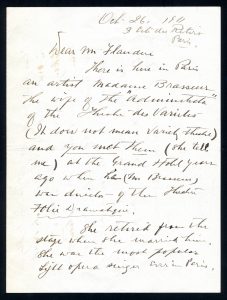 Oct. 26.
3 Cité du Retiro
Paris.
Dear Mr Flanders
There is here in Paris
an artist Madame Brasseur
the wife of the Administrator
of the Theatre des Varietes
(It does not mean Variety theatre)
and you met them (she tells
me) at the Grand Hotel years
ago when he (Mr Brasseur)
was director of the theatre
Folie Dramatique.
She retired from the
stage when she married him.
She was the most popular
light opera singer ever in Paris.